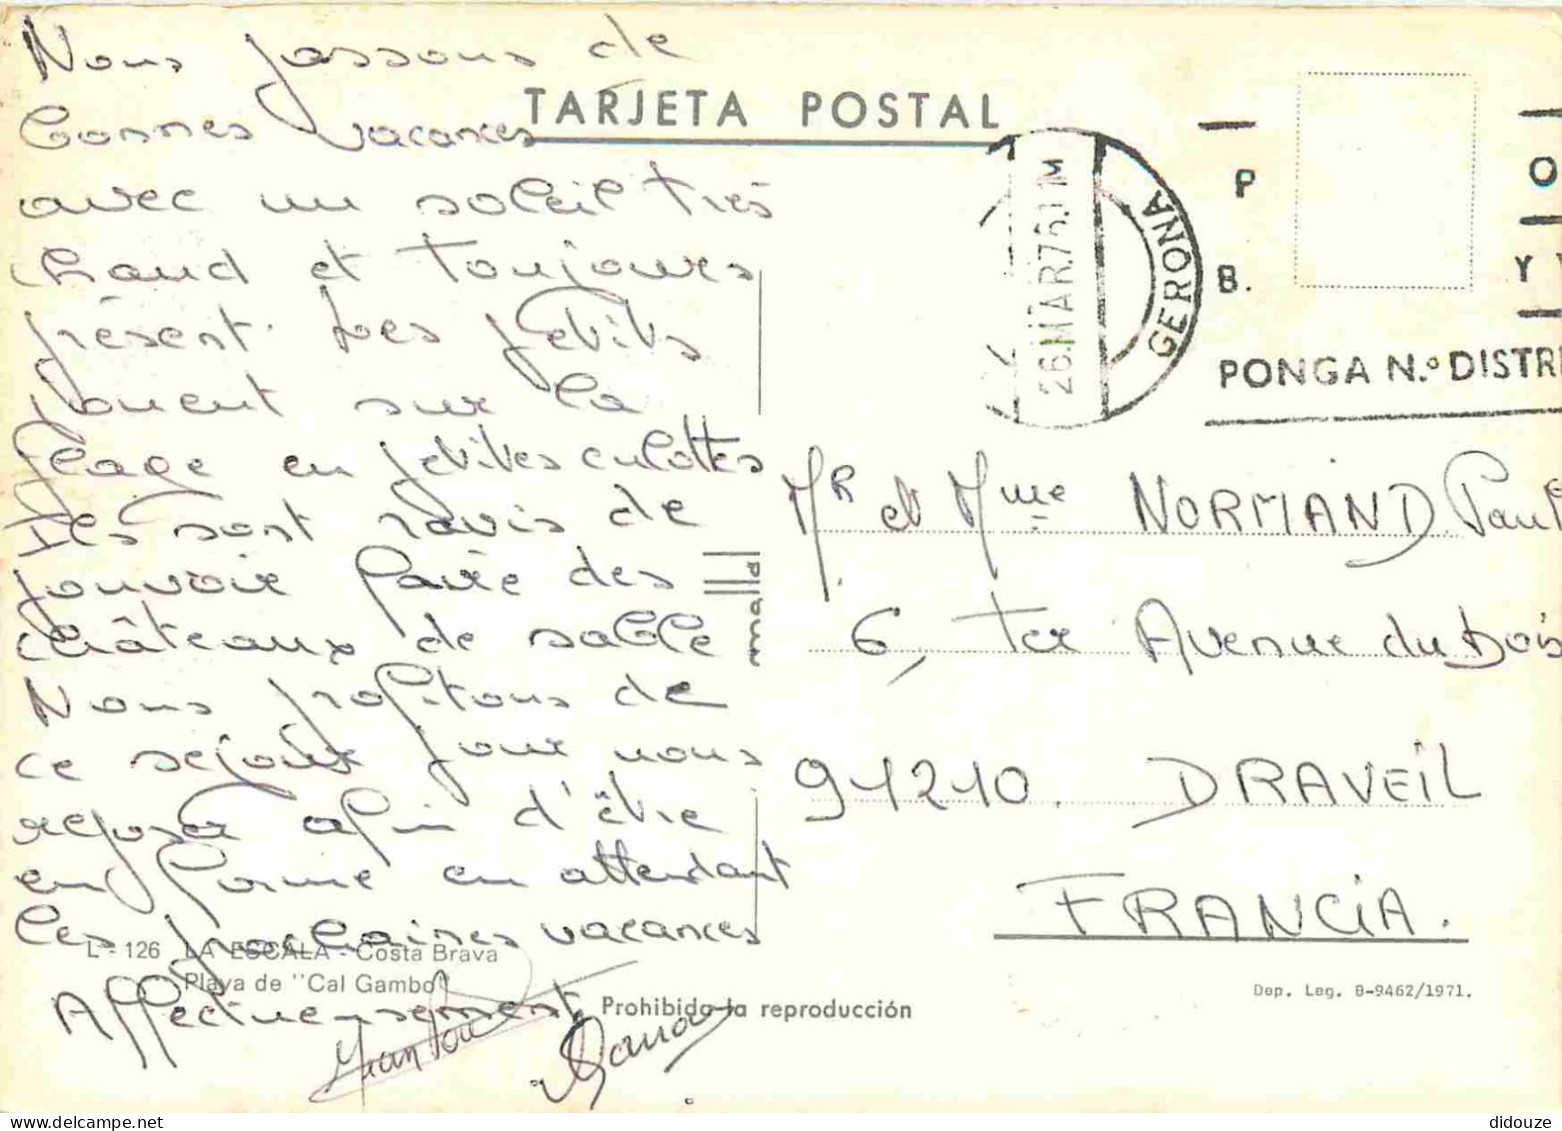 Nous passons de
bonnes vacances
avec un soleil très
chaud et toujours
présent. Les petits
jouent sur la
plage en petites culottes
Ils sont ravis de
pouvoir faire des
châteaux de sable
Nous profitons de
ce séjour pour nous
reposer afin d'être
en forme en attendant
les prochaines vacances
Affectueusement.
TARJETA POSTAL
26.MAR.76.
GERONA
P O
B. Y
PONGA N.º DISTRI
Mr et Mme NORMAND Paul
6, ter Avenue du Bois
91210 DRAVEIL
FRANCIA.
L - 126 LA ESCALA - Costa Brava
Playa de "Cal Gambo"
Prohibida la reproducción
Dep. Leg. B-9462/1971.
didouze